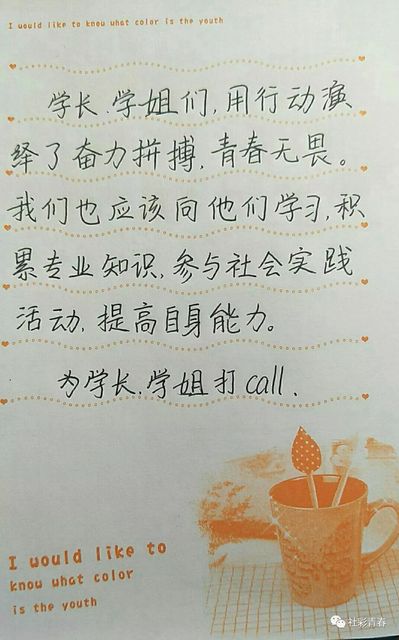 I would like to know what color is the youth
学长、学姐们,用行动演
绎了奋力拼搏,青春无畏。
我们也应该向他们学习,积
累专业知识,参与社会实践
活动,提高自身能力。
为学长、学姐打call.
I would like to
know what color
is the youth
社彩青春